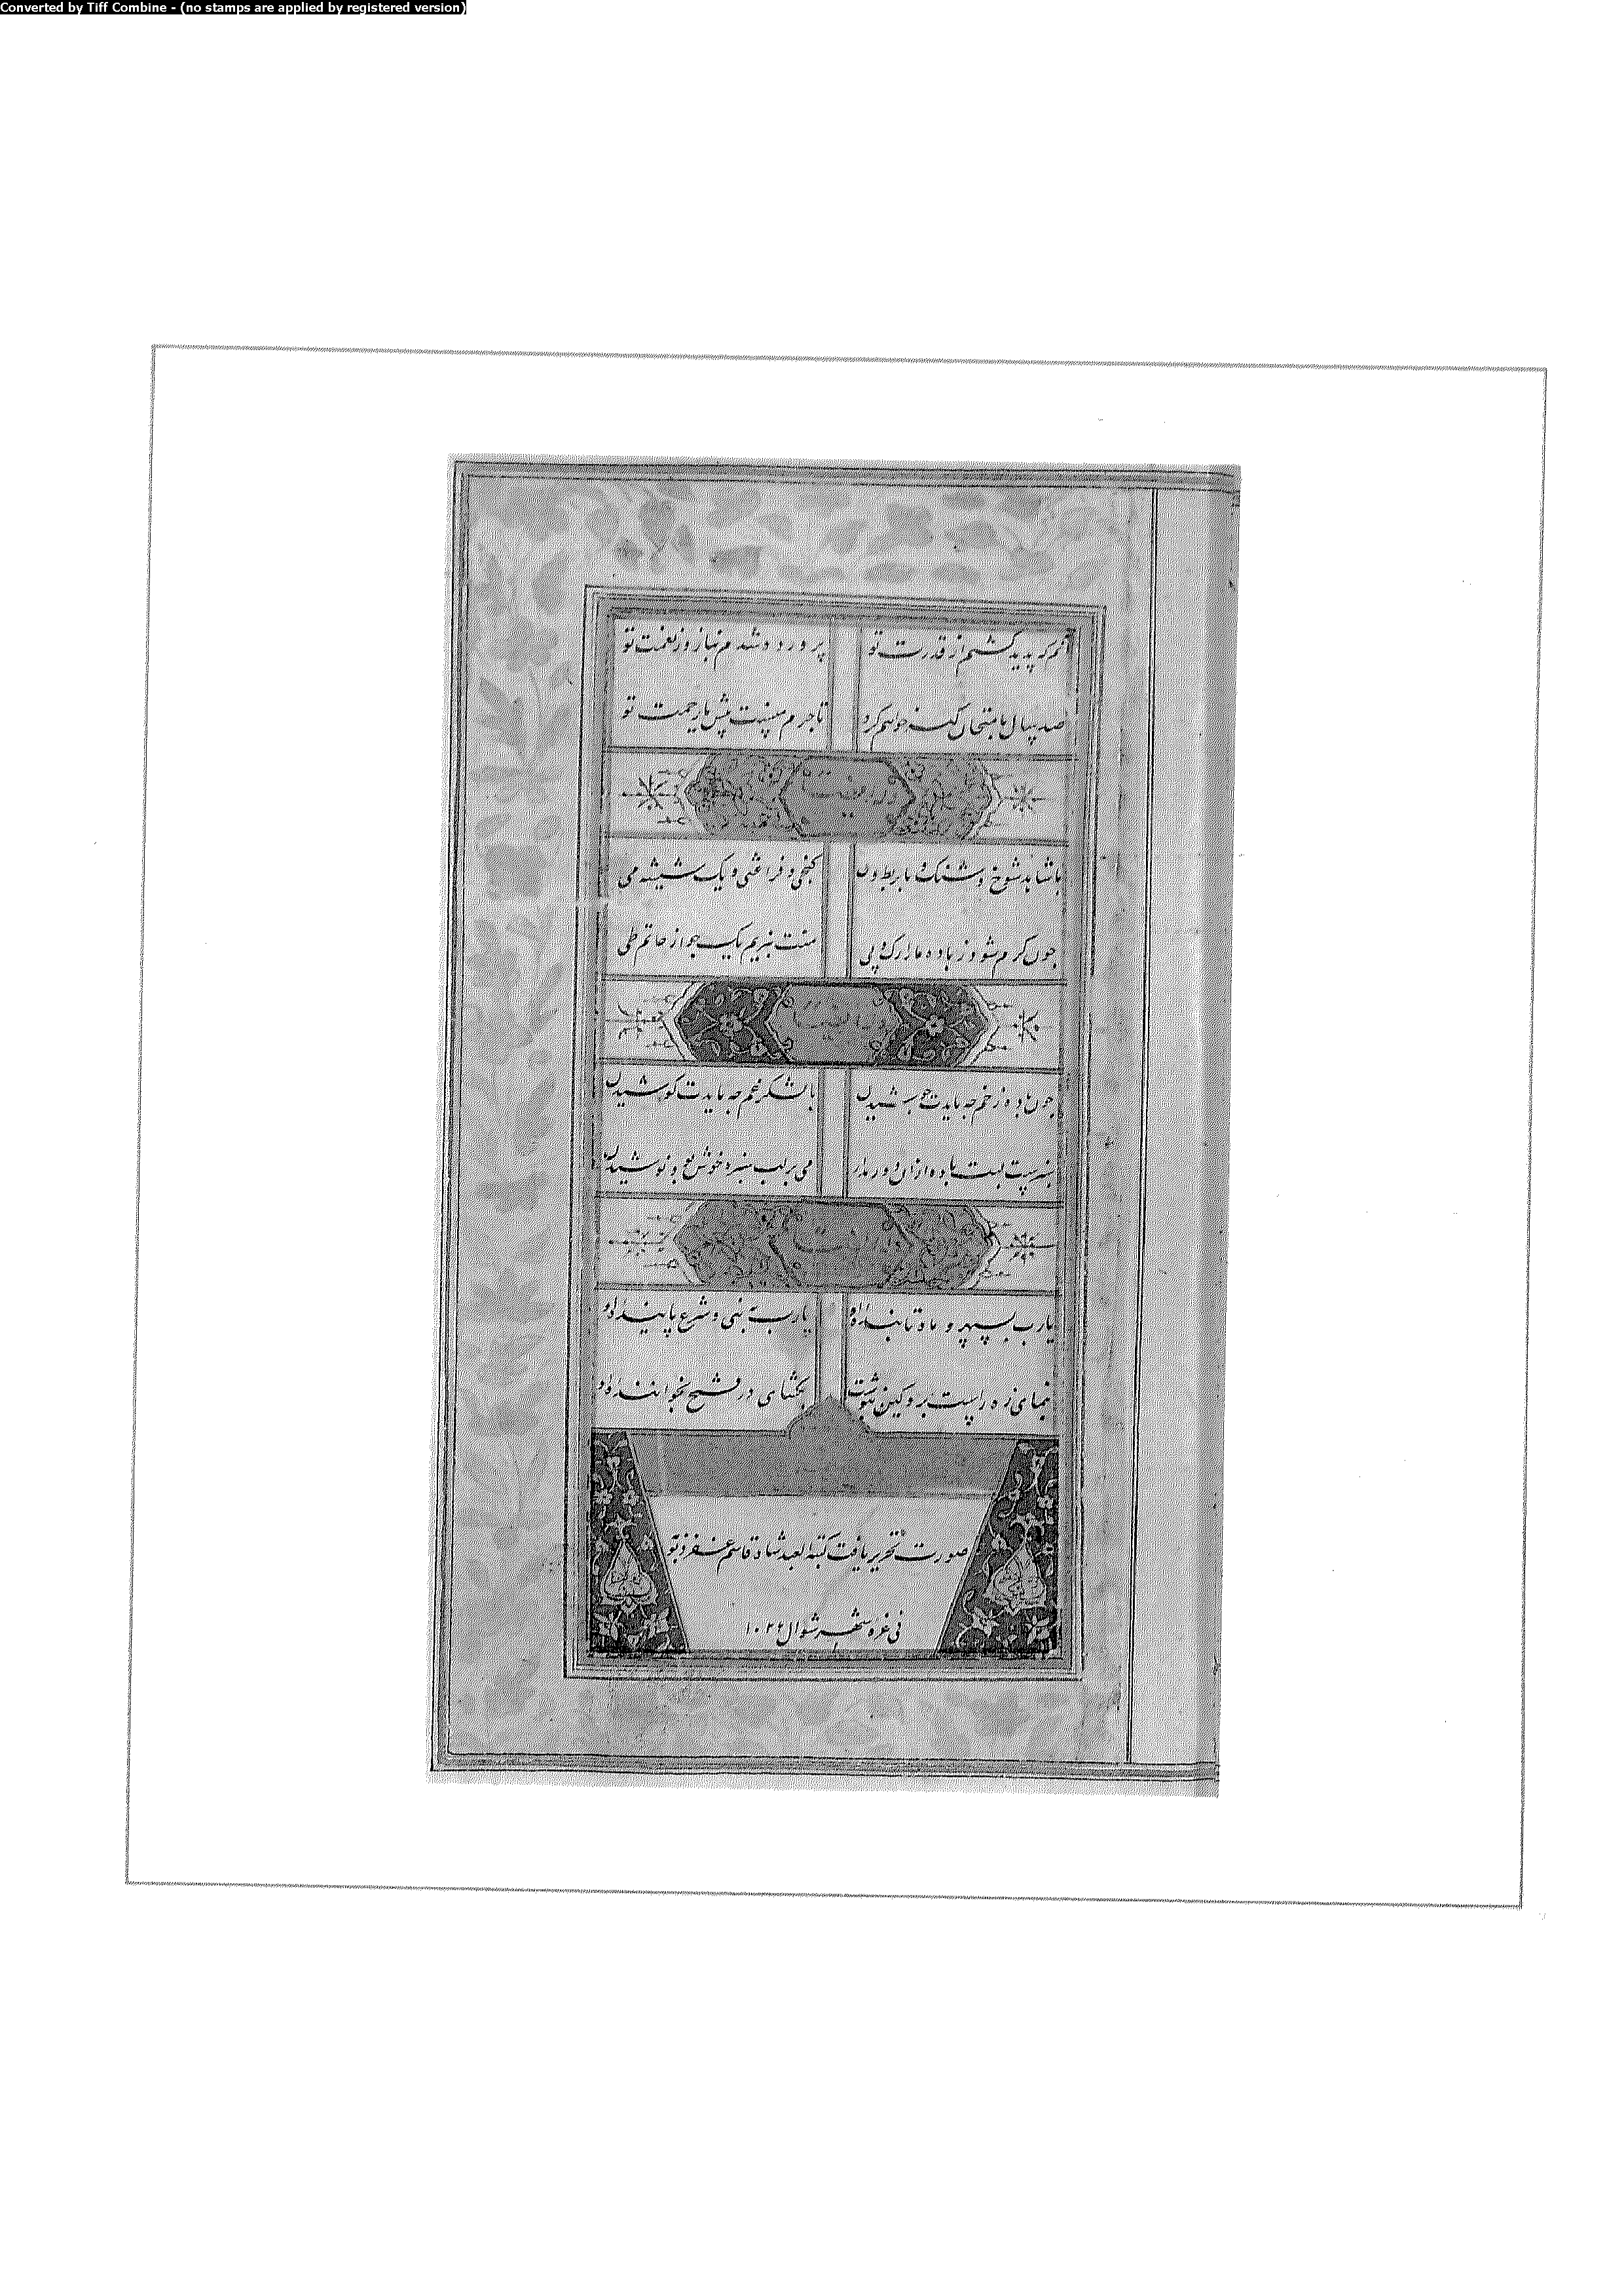 Converted by Tiff Combine - (no stamps are applied by registered version)
آنم که پدید گشتم از قدرت تو پرورده شدم بناز و ز نعمت تو
صد سال بامتحان گنه خواهم کرد تا جرم منست بیش یا رحمت تو
وله ایضا
با شاهد شوخ و شنک و با بربط و نی کنجی و فراغتی و یک شیشه می
چون گرم شود ز باده ما را رگ و پی منت نبریم یک جو از حاتم طی
وله ایضا
چون باده ز خم چه بایدت جوشیدن با لشکر غم چه بایدت کوشیدن
سبزست لبت باده ازان دور مدار می بر لب سبزه خوش بود نوشیدن
یا رب بسپهر و ماه تابنده او یا رب به نبی و شرع پاینده او
بنمای ره راست بر و کین بنوشت بگشای در فتح بخواننده او
صورت تحریر یافت کتبه العبد شاه قاسم غفر ذنوبه
فی غره شهر شوال ۱۰۲۴